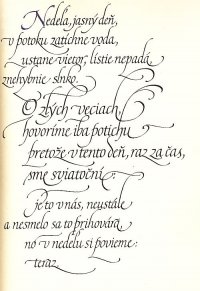 Nedeľa, jasný deň,
v potoku zatíchne voda,
ustane vietor, lístie nepadá,
znehybnie slnko.
O zlých veciach,
hovoríme iba potichu
pretože v tento deň, raz za čas,
sme sviatoční:
je to v nás, neustále
a nesmelo sa to prihovára,
no v nedeľu si povieme:
teraz